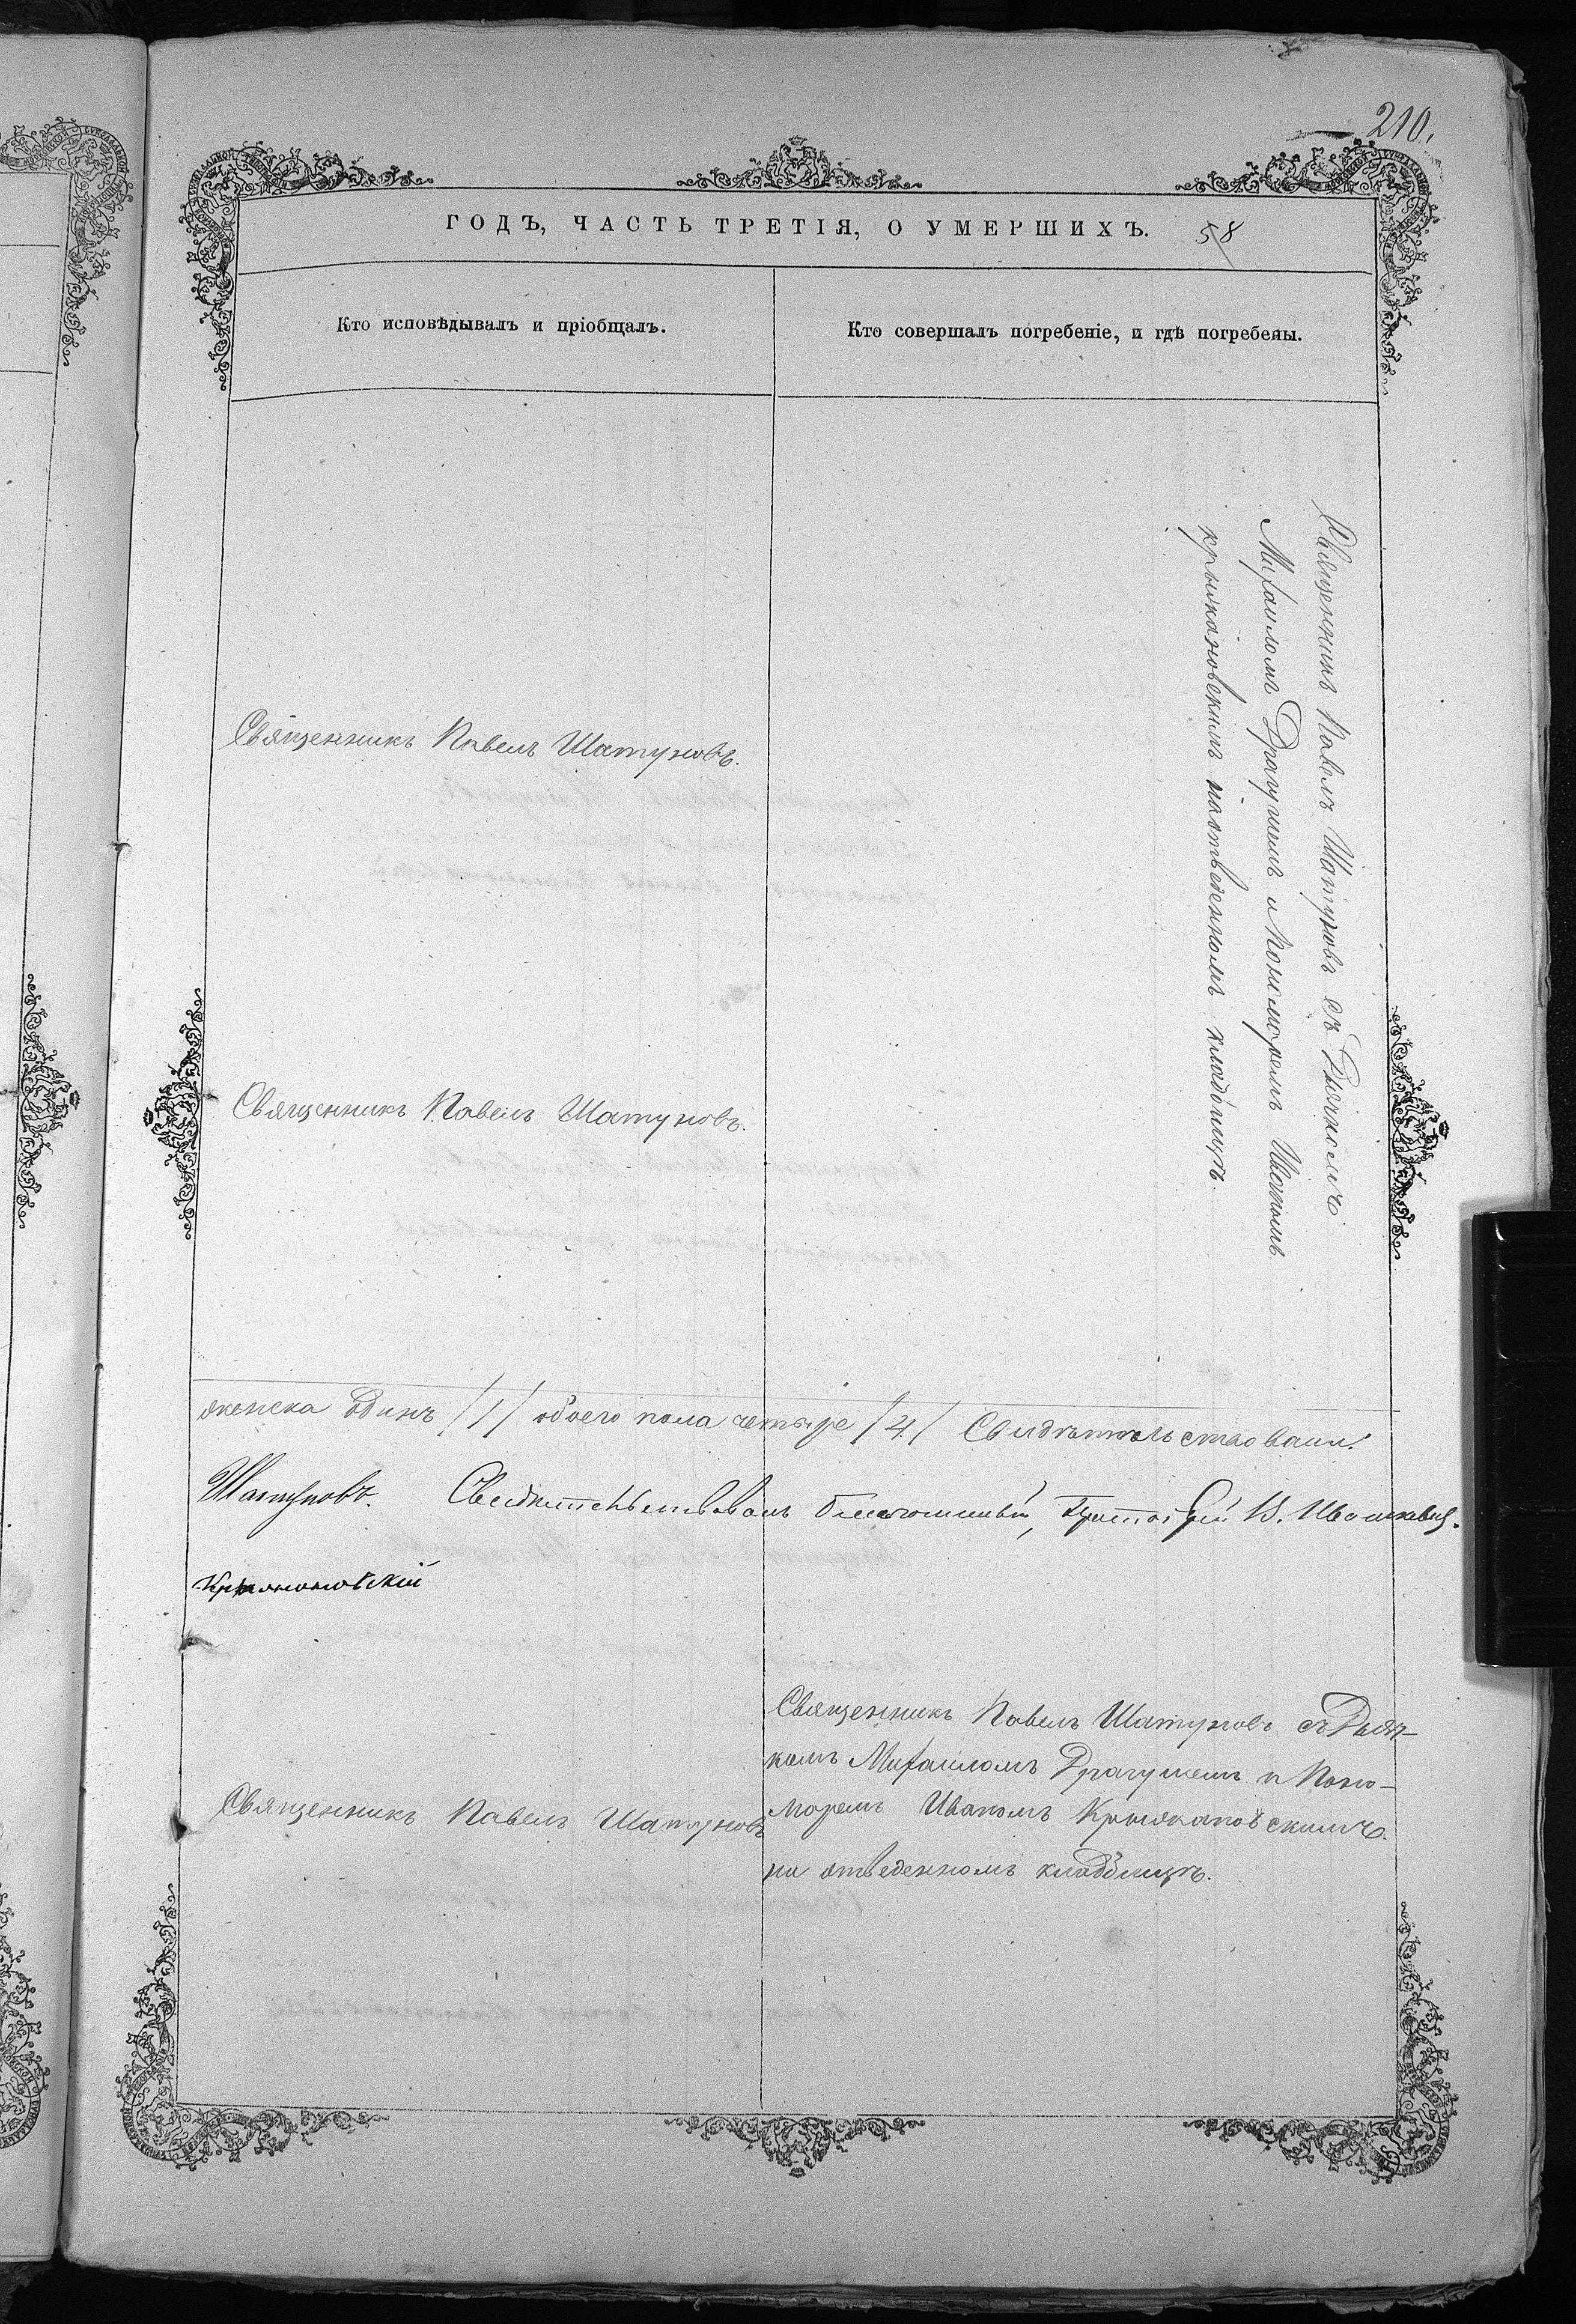 210.
ГОДЪ, ЧАСТЬ ТРЕТІЯ, О УМЕРШИХЪ. 58
Кто исповѣдывалъ и пріобщалъ.
Кто совершалъ погребеніе, и гдѣ погребены.
Священникъ Павелъ Шатуновъ.
Священникъ Павелъ Шатуновъ.
Священникъ Павелъ Шатуновъ съ Дьякомъ
Михаиломъ Драгушемъ и Пономаремъ Иваномъ
Крыжановскимъ на отведенномъ кладбищѣ.
женска одинъ /1/ обоего пола четыре /4/ Свидѣтельствовали:
Шатуновъ. Свидѣтельствовалъ Благочинный, В. Ивашкевич.
Крыжановскій
Священникъ Павелъ Шатуновъ
Священникъ Павелъ Шатуновъ съ Дья-
комъ Михаиломъ Драгушемъ и Поно-
маремъ Иваномъ Крыжановскимъ.
на отведенномъ кладбищѣ.